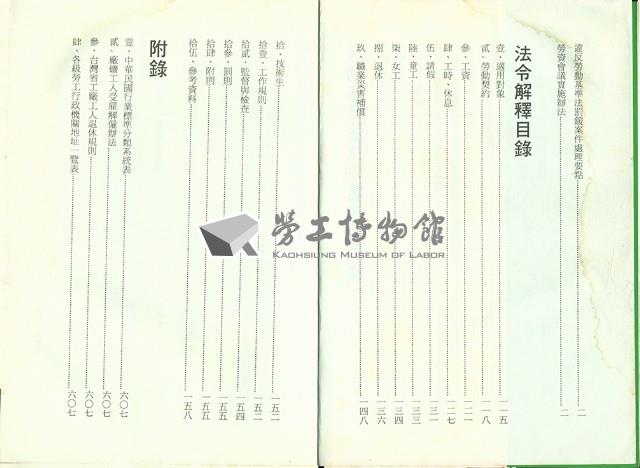 違反勞動基準法罰鍰案件處理要點……二
勞資會議實施辦法……二
法令解釋目錄
壹、適用對象……一五
貳、勞動契約……一八
參、工資……二一
肆、工時、休息……二七
伍、請假……三一
陸、童工……三三
柒、女工……三四
捌、退休……三六
玖、職業災害補償……一四八
拾、技術生……一五二
拾壹、工作規則……一五二
拾貳、監督與檢查……一五四
拾參、罰則……一五五
拾肆、附則……一五五
拾伍、參考資料……一五八
附錄
壹、中華民國行業標準分類系統表……六〇七
貳、廠礦工人受雇解僱辦法……六〇七
參、台灣省工廠工人退休規則……六〇七
肆、各級勞工行政機關地址一覽表……六〇七
勞工博物館
KAOHSIUNG MUSEUM OF LABOR